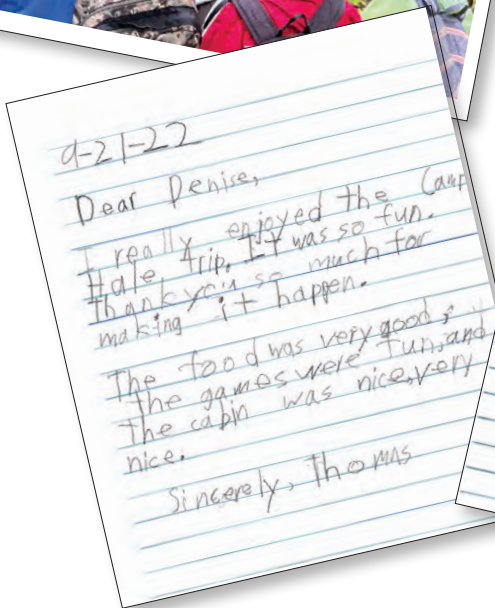 9-21-22
Dear Denise,
I really enjoyed the Camp
Hale trip. It was so fun.
Thank you so much for
making it happen.
The food was very good,
the games were fun, and
the cabin was nice, very
nice.
Sincerely, Thomas